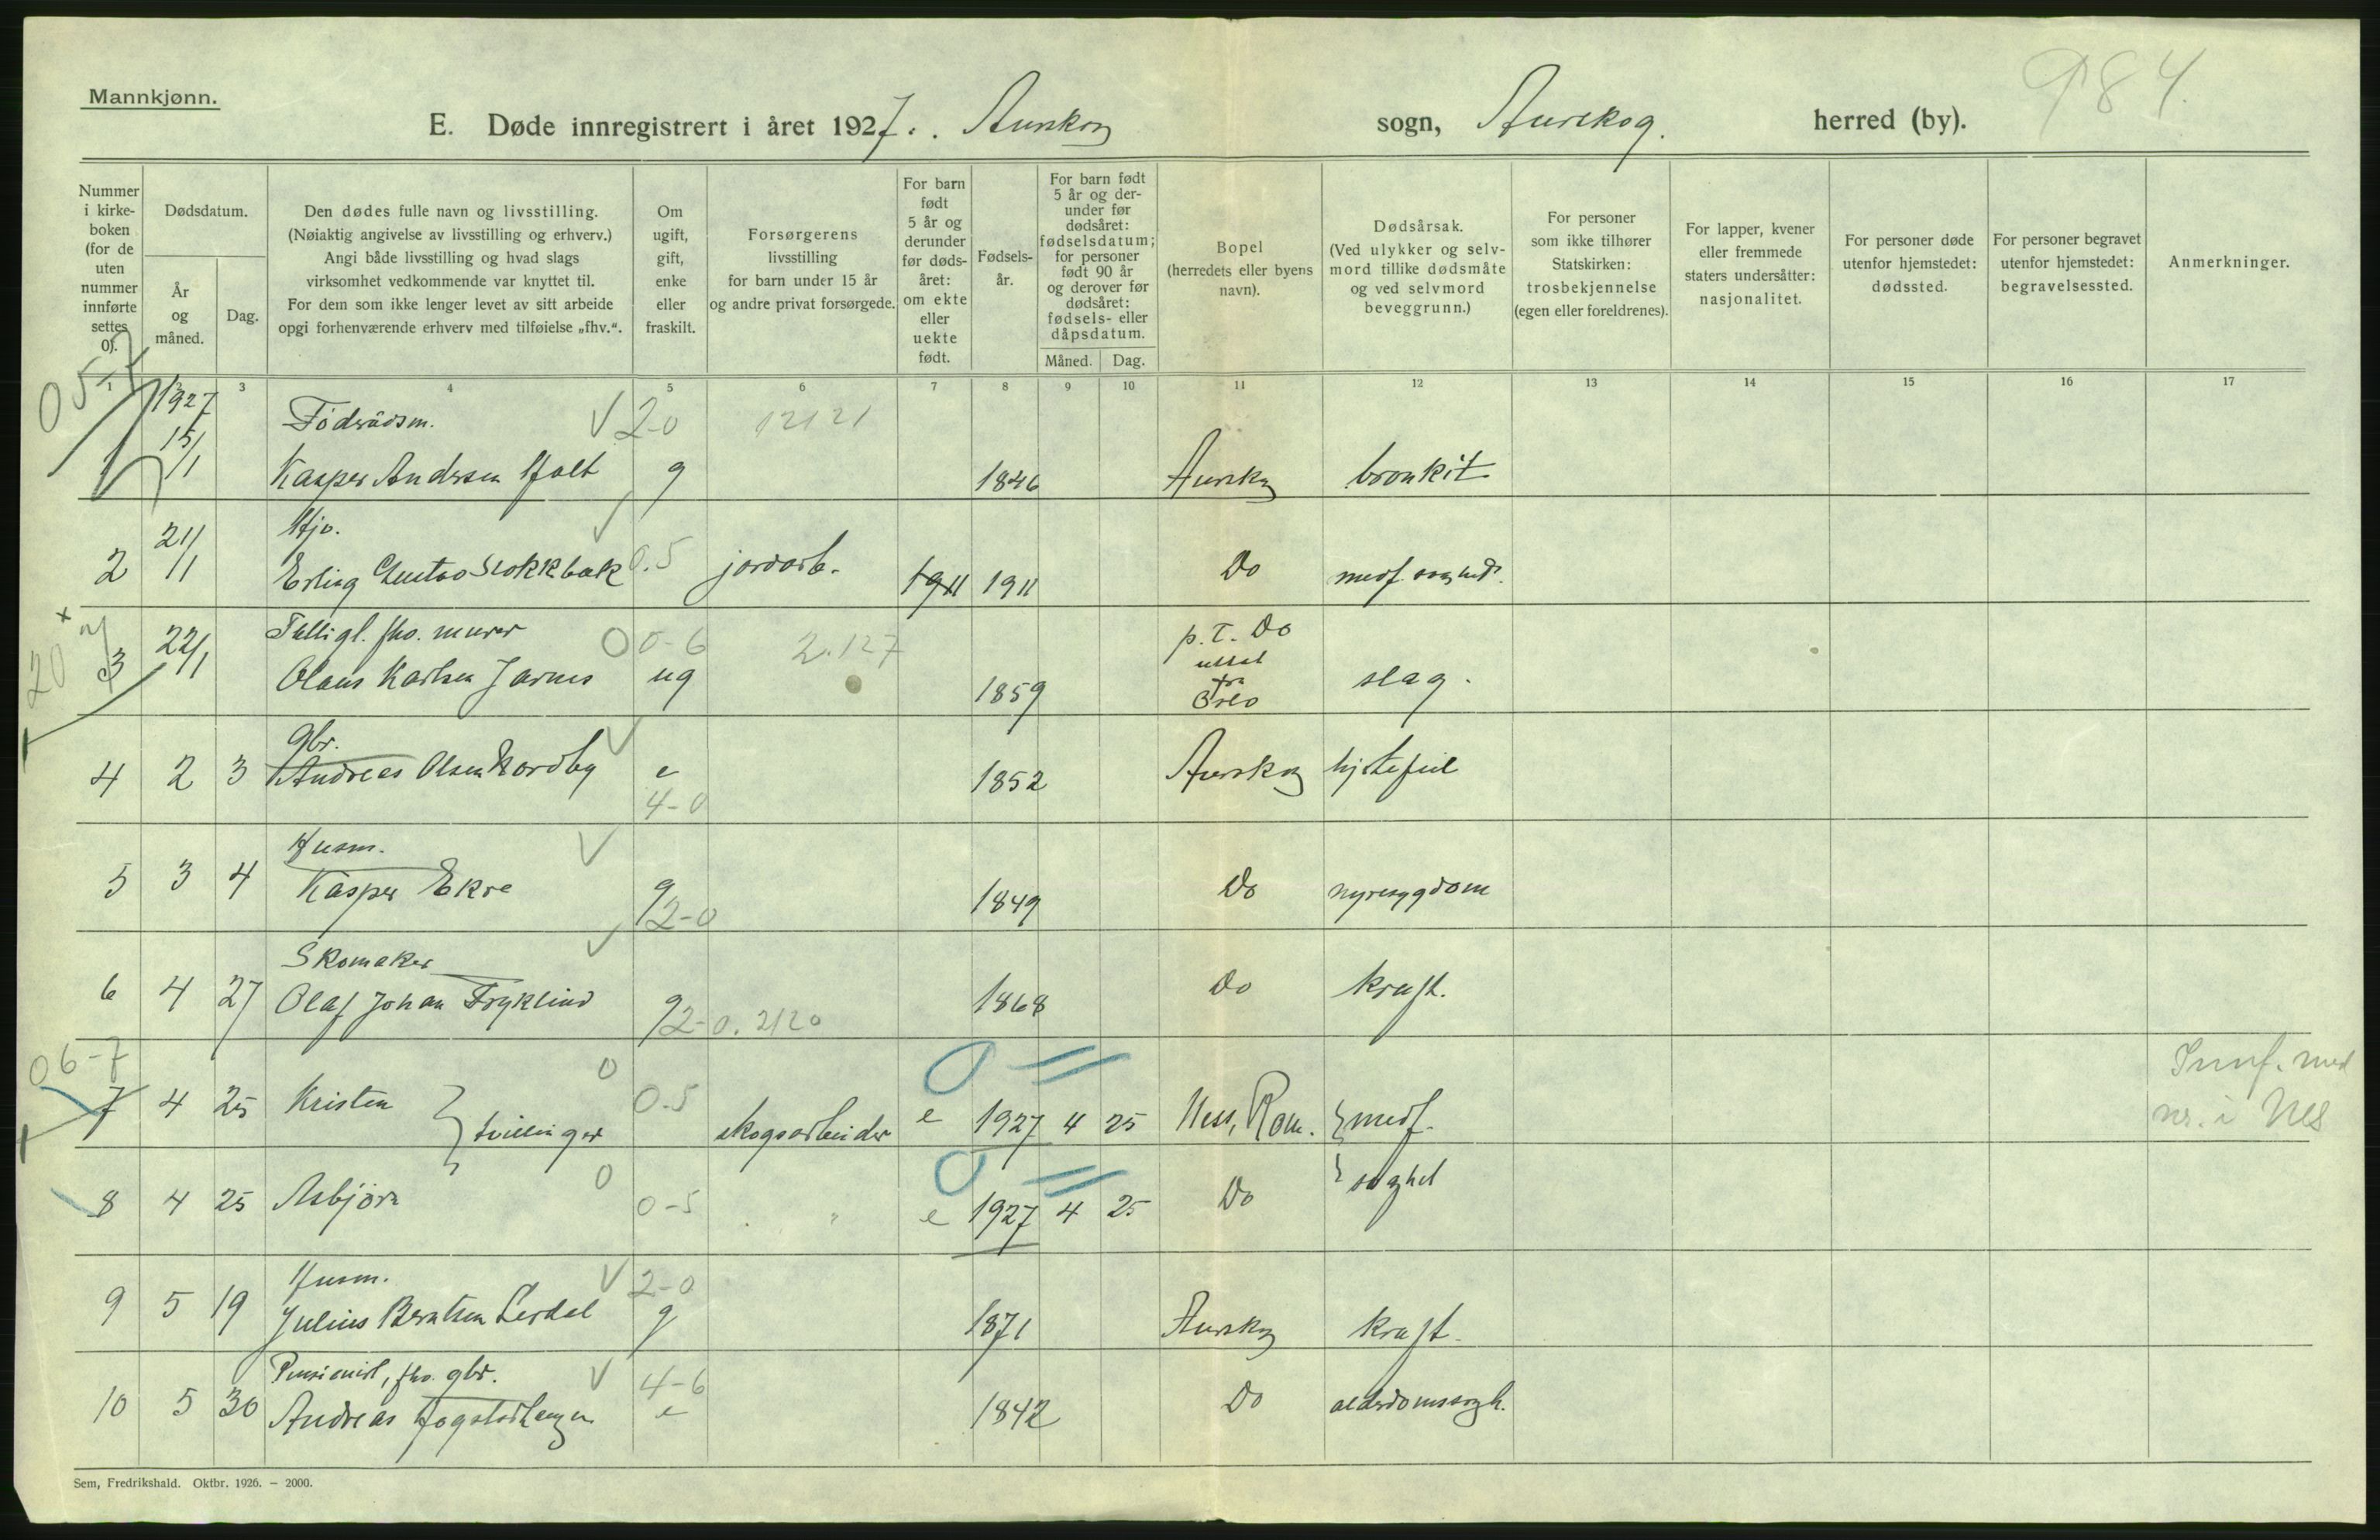 Mannkjønn.
984.
E. Døde innregistrert i året 1927. Aurskog sogn, Aurskog. herred (by).
Nummer i kirkeboken (for de uten nummer innførte settes 0).
Dødsdatum.
År og måned.
Dag.
Den dødes fulle navn og livsstilling.
(Nøiaktig angivelse av livsstilling og erhverv.)
Angi både livsstilling og hvad slags
virksomhet vedkommende var knyttet til.
For dem som ikke lenger levet av sitt arbeide
opgi forhenværende erhverv med tilføielse „fhv.“.
Om ugift, gift, enke eller fraskilt.
Forsørgerens
livsstilling
for barn under 15 år
og andre privat forsørgede.
For barn født 5 år og derunder før dødsåret: om ekte eller uekte født.
Fødselsår.
For barn født 5 år og derunder før dødsåret: fødselsdatum; for personer født 90 år og derover før dødsåret: fødsels- eller dåpsdatum.
Måned. Dag.
Bopel
(herredets eller byens navn).
Dødsårsak.
(Ved ulykker og selvmord tillike dødsmåte og ved selvmord beveggrunn.)
For personer som ikke tilhører Statskirken: trosbekjennelse (egen eller foreldrenes).
For lapper, kvener eller fremmede staters undersåtter: nasjonalitet.
For personer døde utenfor hjemstedet: dødssted.
For personer begravet utenfor hjemstedet: begravelsessted.
Anmerkninger.
1 3 4 5 6 7 8 9 10 11 12 13 14 15 16 17
05-7
1927
Föderådsm. V 2-0 12121
1 15/1 Kasper Andersen Holt g 1846 Aurskog bronkit
Hjv. V
2 21/1 Erling Gustav Stokkbæk 0.5 jordarb. 1911 1911 Do medf. svaghed.
20 x
Tilligl. fhv. murer 0 0-6 2.127 p.t. Do
3 22/1 Olaus Karlsen Jarnes ug 1859 utsat fra Oslo slag.
Gbr. V
4 2 3 Andreas Olsen Nordby e 1852 Aurskog hjertefeil
4-0
Husm. V
5 3 4 Kasper Ekre g 1849 Do nyresygdom
2-0
Skomaker V
6 4 27 Olaf Johan Fryklind g 1868 Do kræft.
2-0. 2120
06-7
7 4 25 Kristen } tvillinger 0 0-5 skogsarbeider e 1927 4 25 Ness, Rom. } medf. Innf. med nr. i Nes
8 4 25 Asbjörn 0 0-5 " e 1927 4 25 Do } svaghet
Husm. V 2-0
9 5 19 Julius Berntsen Lerdal g 1871 Aurskog kræft.
Pensionist, fhv. gbr. V 4-6
10 5 30 Andreas Hogstorhaugen e 1842 Do alderdomssvagh.
Sem, Fredrikshald. Oktbr. 1926. – 2000.